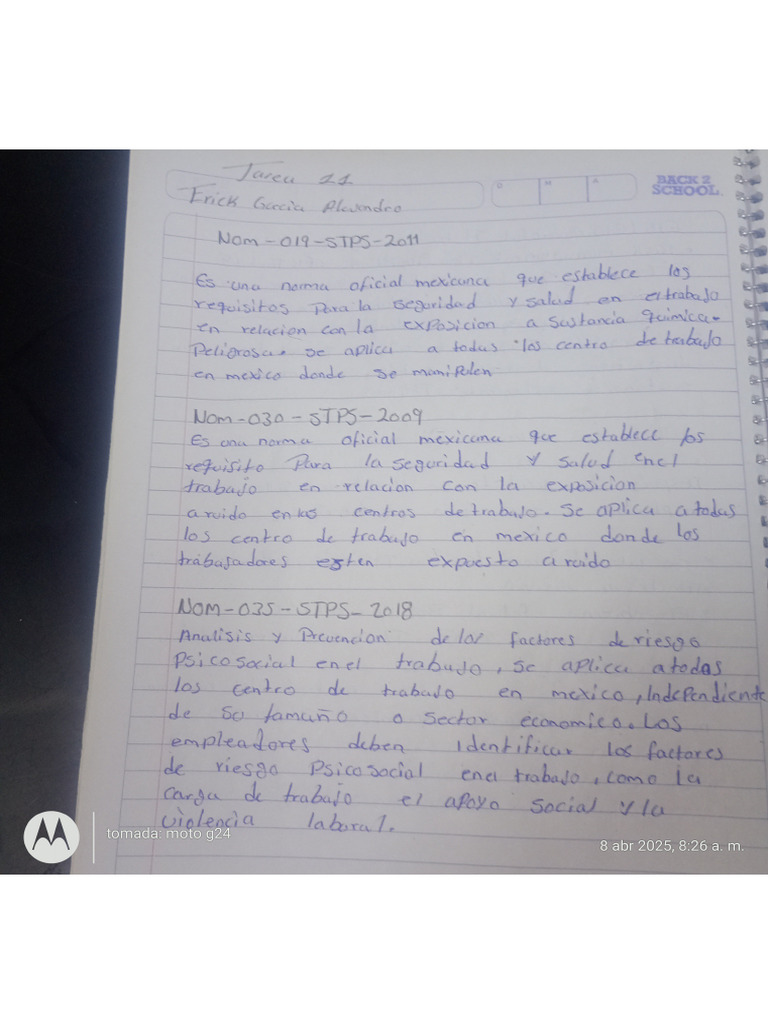 Tarea 11
BACK 2
SCHOOL
D M A
Erick Garcia Alejandro
Nom-019-STPS-2011
Es una norma oficial mexicana que establece los
requisitos Para la seguridad y salud en el trabajo
en relacion con la exposicion a sustancia quimica.
Peligrosa. se aplica a todas los centro de trabajo
en mexico donde se manipulen
Nom-030-STPS-2009
Es una norma oficial mexicana que establece los
requisito Para la seguridad y salud en el
trabajo en relacion con la exposicion
a ruido en los centros de trabajo. Se aplica a todas
los centro de trabajo en mexico donde los
trabajadores esten expuesto a ruido
Nom-035-STPS-2018
Analisis y Prevencion de los factores de riesgo
Psicosocial en el trabajo, se aplica a todas
los centro de trabajo en mexico, Independiente
de su tamaño o sector economico. Los
empleadores deben identificar los factores
de riesgo Psicosocial en el trabajo, como la
carga de trabajo el apoyo social y la
violencia laboral.
tomada: moto g24
8 abr 2025, 8:26 a. m.